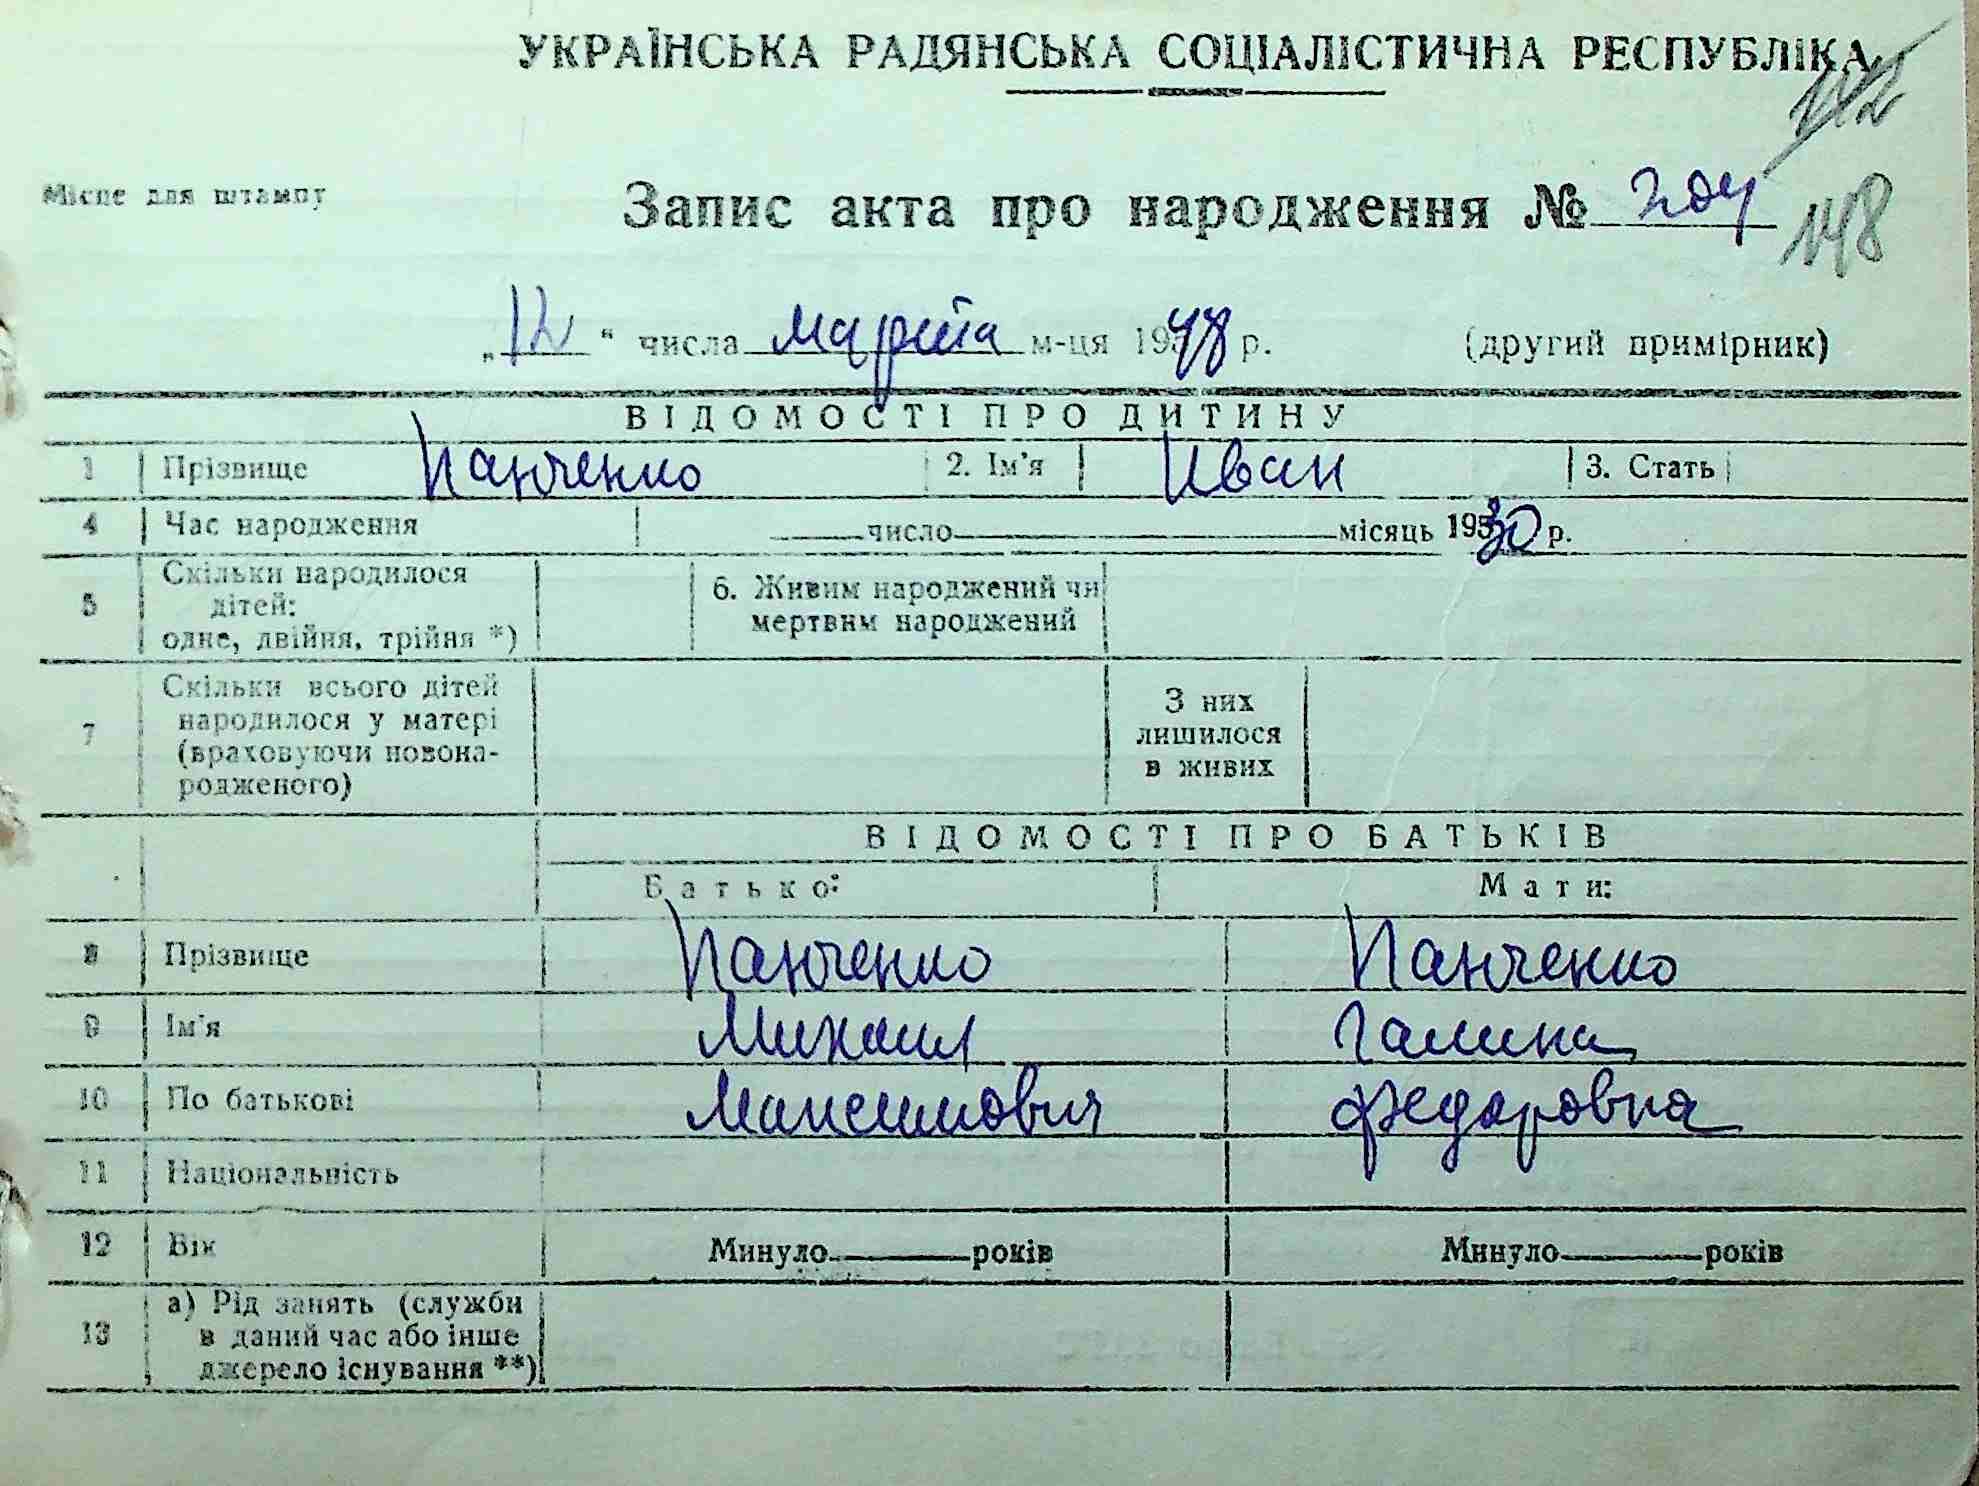 УКРАЇНСЬКА РАДЯНСЬКА СОЦІАЛІСТИЧНА РЕСПУБЛІКА
112
Місце для штампу
Запис акта про народження № 204
148
„12“ числа марта м-ця 1948 р. (другий примірник)
ВІДОМОСТІ ПРО ДИТИНУ
1 Прізвище Панченко 2. Ім'я Иван 3. Стать
4 Час народження число місяць 1930 р.
5 Скільки народилося дітей: одне, двійня, трійня *) 6. Живим народжений чи мертвим народжений
7 Скільки всього дітей народилося у матері (враховуючи новонародженого) З них лишилося в живих
ВІДОМОСТІ ПРО БАТЬКІВ
Батько: Мати:
8 Прізвище Панченко Панченко
9 Ім'я Михаил Галина
10 По батькові Максимович Федоровна
11 Національність
12 Вік Минуло років Минуло років
13 а) Рід занять (служби в даний час або інше джерело існування **)